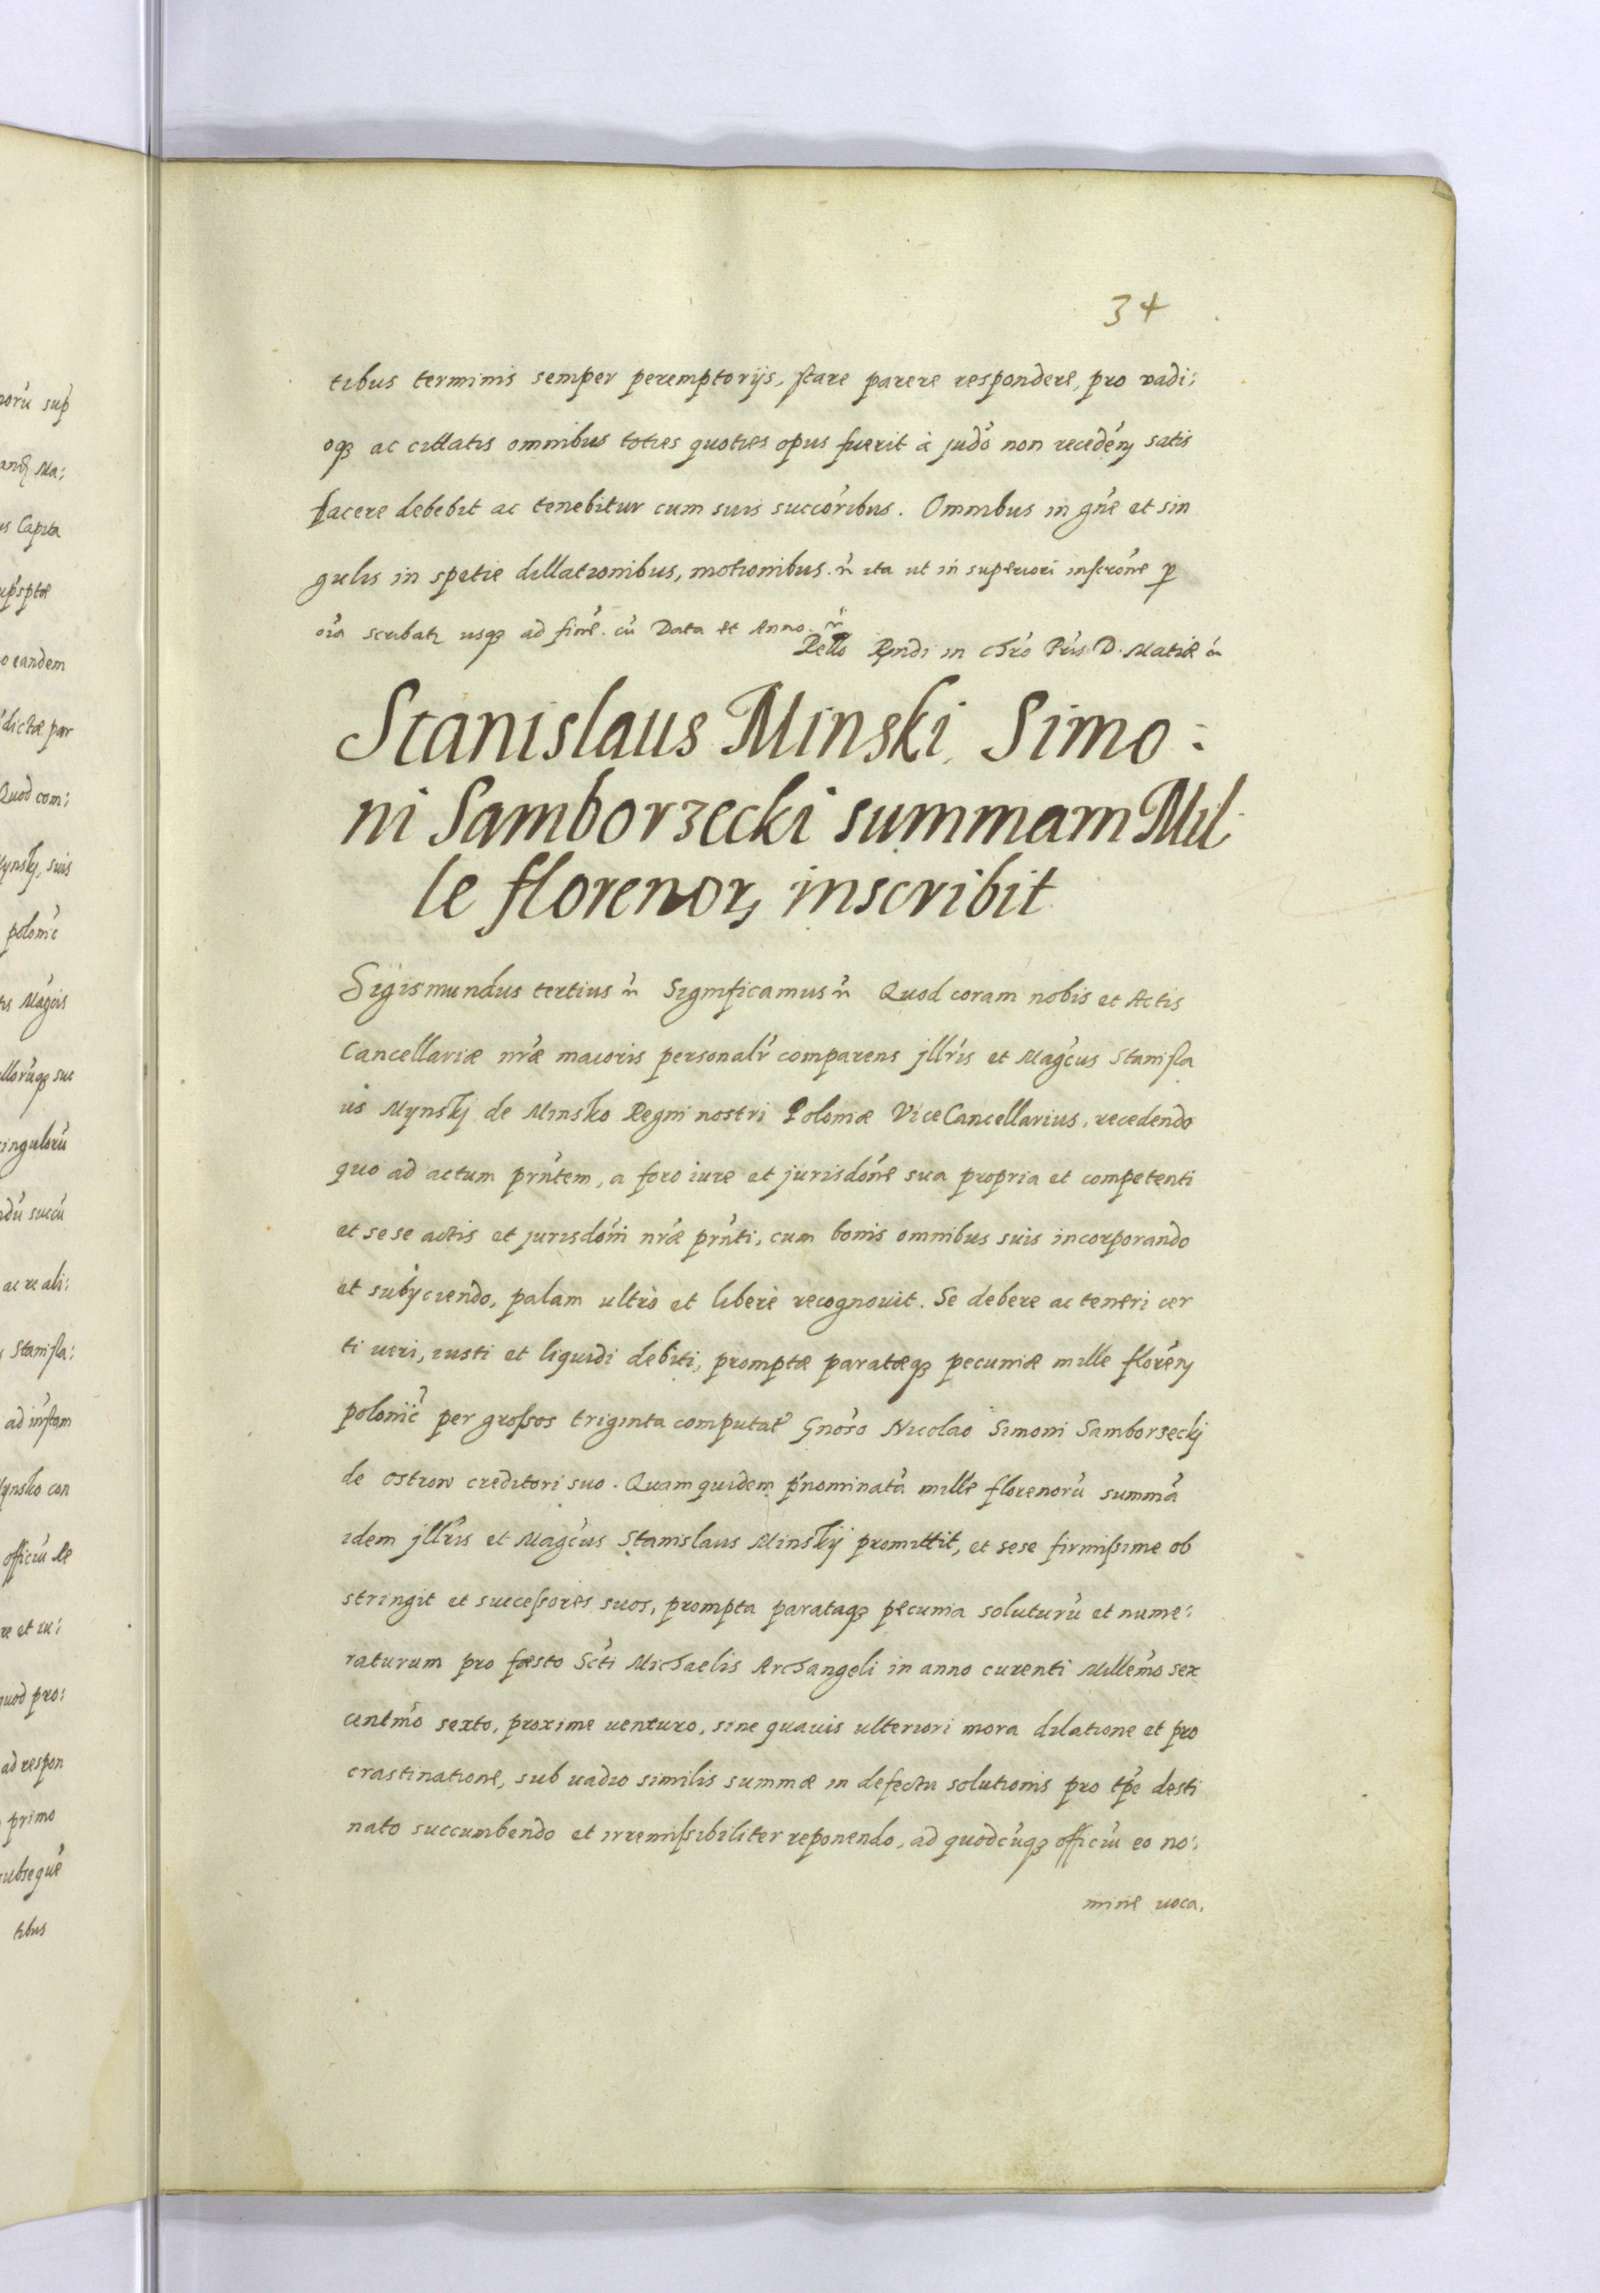 34
tibus terminis semper peremptorijs, stare parere respondere, pro vadi:
oqꝫ ac cittatis omnibus toties quoties opus fuerit à judō non recedeń satis
facere debebit ac tenebitur cum suis succoribus. Omnibus in gńe et sin
gulis in spetie dillationibus, motionibus. ita ut in superiori inscrońe p
oīa scribatꝫ usqꝫ ad finē. cū Data et Anno
Rello Rńdi in Chro Pris D. Matiæ
Stanislaus Minski, Simo:
ni Samborzecki summam Mil
le florenorꝫ inscribit
Sigismundus tertius Significamus Quod coram nobis et Actis
Cancellariæ nræ maioris personalr comparens jllris et Magcus Stanisla
us Mynskj de Minsko Regni nostri Poloniæ ViceCancellarius, recedendo
quo ad actum prńtem, a foro iure et jurisdońe sua propria et competenti
et sese actis et jurisdońi nræ prńti, cum bonis omnibus suis incorporando
et subijciendo, palam ultrò et liberè recognovit. Se debere ac teneri cer
ti ueri, iusti et liquidi debiti, promptæ paratæqꝫ pecuniæ mille floreń
polonić per grossos triginta computat Gnoso Nicolao Simoni Samborzeckj
de Ostrow creditori suo. Quam quidem pńominatā mille florenorū summā
idem jllris et Magcus Stanislaus Minskij promittit, et sese firmissime ob
stringit et successores suos, prompta parataqꝫ pecunia soluturū et nume:
raturum pro fæsto Scti Michaelis Archangeli in anno curenti Millemo sex
centmo sexto, proxime venturo, sine quavis ulteriori mora dilatione et pro
crastinatione, sub vadio similis summæ in defectu solutionis pro tpe desti
nato succumbendo et irremissibiliter reponendo, ad quodcūqꝫ officiū eo no:
mine uoca,